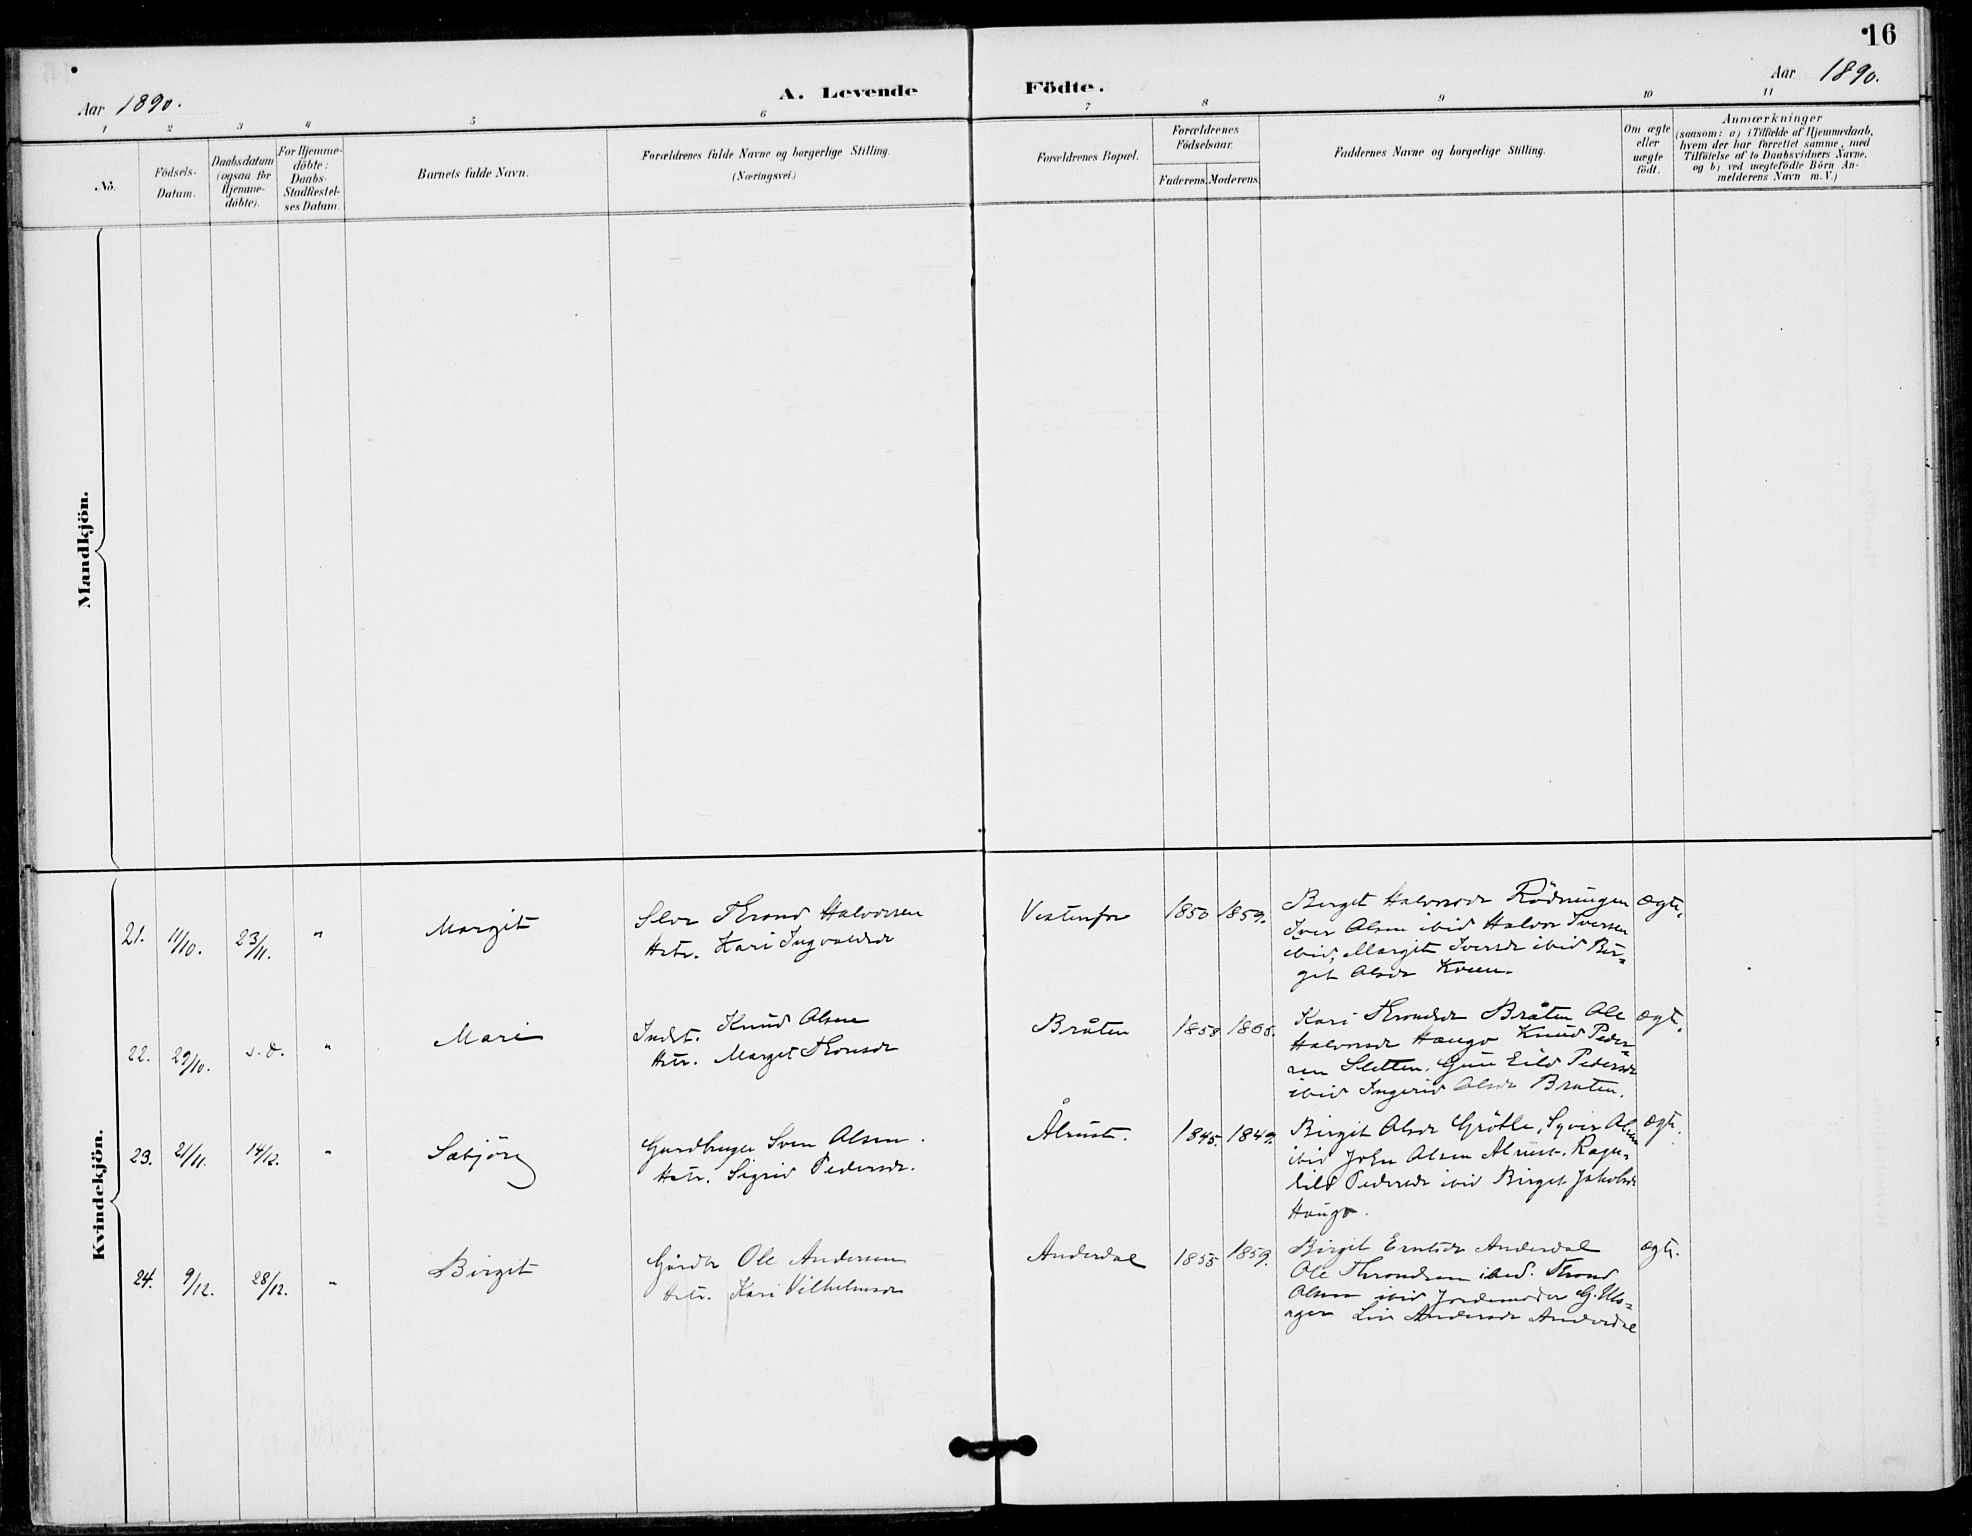 16
Aar 1890.
A. Levende Födte.
Aar 1890.
1 2 3 4 5 6 7 8 9 10 11
No.
Födsels-
Datum.
Daabsdatum
(ogsaa for
Hjemme-
döbte).
For Hjemme-
döbte:
Daabs-
Stadfæstel-
ses Datum.
Barnets fulde Navn.
Forældrenes fulde Navne og borgerlige Stilling.
(Næringsvei.)
Forældrenes Bopæl.
Forældrenes
Födselsaar.
Faderens. Moderens.
Faddernes Navne og borgerlige Stilling.
Om ægte
eller
uægte
födt.
Anmærkninger
(saasom: a) i Tilfælde af Hjemmedaab,
hvem der har forrettet samme, med
Tilföielse af to Daabsvidners Navne,
og b) ved uægtefödte Börn An-
melderens Navn m. V.)
Mandkjön.
Kvindekjön.
21. 11/10. 23/11. " Margit
Selve Thrond Halvorsen
Hstr. Kari Ingvaldsdr
Vestenfor 1850 1859.
Berget Halvorsdr Rödningen
Iver Olsen ibid Halvor Iversen
ibid, Margit Iversdr ibid Ber-
get Olsdr
ægte.
22. 29/10. s.d. " Mari
Indst. Knud Olsen
Hstr. Marget
Bråten 1858 1865.
Kari Thronsdr Bråten Ole
Haugo Knud Peder-
sen Sletten, Pedersdr
ibid Ingerid Olsdr Braten.
ægt.
23. 21/11. 14/12. " Sæbjörg
Gardbruger Sven Olsen.
Hstr. Sigrid Pedersdr.
Ålrust. 1845. 1849.
Birgit Olsdr Grötte, Syver Olsen
ibid John Olsen Ålrust. Ragn-
hild Pedersdr ibid Birget Jakobsdr
Haugo.
ægt.
24. 9/12. 28/12. " Birgit
Gårdbr Ole Andersen
Hstr. Kari Vilhelmsdr
Anderdal 1855 1859.
Birgit Anderdal
Ole Throndsen ibid. Thrond
Olsen ibid Jordemoder G. Uls-
ager Liv Andersdr Anderdal
ægt.